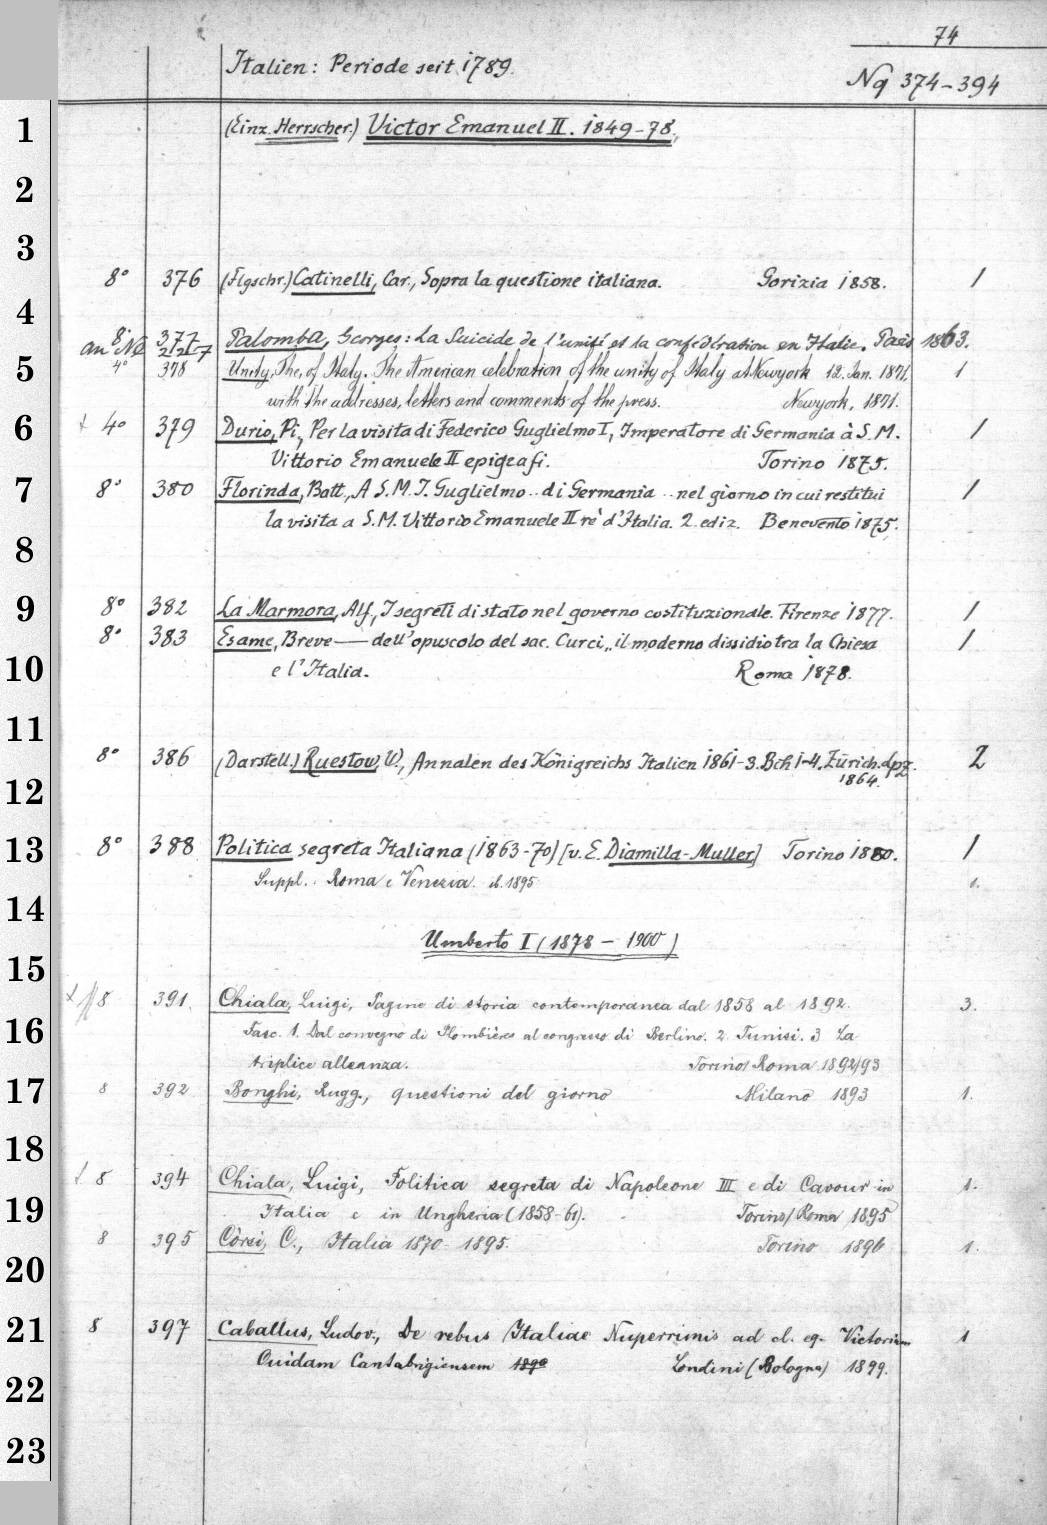 74
Italien: Periode seit 1789.
Nq 374-394
1 (Einz. Herrscher.) Victor Emanuel II. 1849-78.
2
3
8° 376 (Flgschr.) Catinelli, Car., Sopra la questione italiana. Gorizia 1858. 1
4
8° 377 Palomba, Georges: La Suicide de l'unité et la confédération en Italie. Paris 1863.
an Nq 2217
5 4° 378 Unity, The, of Italy. The American celebration of the unity of Italy at Newyork 12. Jan. 1871, 1
with the addresses, letters and comments of the press. Newyork, 1871.
6 + 4° 379 Durio, Pi., Per la visita di Federico Guglielmo I, Imperatore di Germania à S.M. 1
Vittorio Emanuele II epigrafi. Torino 1875.
7 8° 380 Florinda, Batt., A S.M.I. Guglielmo .. di Germania .. nel giorno in cui restitui 1
la visita a S.M. Vittorio Emanuele II re d'Italia. 2. ediz. Benevento 1875.
8
9 8° 382 La Marmora, Alf., I segreti di stato nel governo costituzionale. Firenze 1877. 1
8° 383 Esame, Breve — dell'opuscolo del sac. Curci „il moderno dissidio tra la Chiesa 1
10 e l'Italia. Roma 1878.
11
8° 386 (Darstell.) Ruestow, W., Annalen des Königreichs Italien 1861-3. Bch 1-4. Zürich. Lpz. 2
1864.
12
13 8° 388 Politica segreta Italiana (1863-70) [v. E. Diamilla-Muller] Torino 1880. 1
Suppl.: Roma e Venezia. ib. 1895 1.
14
Umberto I (1878 - 1900)
15
+ 8 391 Chiala, Luigi, Pagine di storia contemporanea dal 1858 al 1892. 3.
16 Fasc. 1. Dal convegno di Plombières al congresso di Berlino. 2. Tunisi. 3 La
triplice alleanza. Torino/Roma 1892/93
17 8 392 Bonghi, Rugg., questioni del giorno Milano 1893 1.
18
+ 8 394 Chiala, Luigi, Politica segreta di Napoleone III e di Cavour in 1.
19 Italia e in Ungheria (1858-61). Torino/Roma 1895
8 395 Corsi, C., Italia 1870-1895. Torino 1896 1.
20
21 8 397 Caballus, Ludov., De rebus Italiae Nuperrimis ad cl. eq. Victorium 1
Ouidam Cantabrigiensem 1890 Londini (Bologna) 1899.
22
23